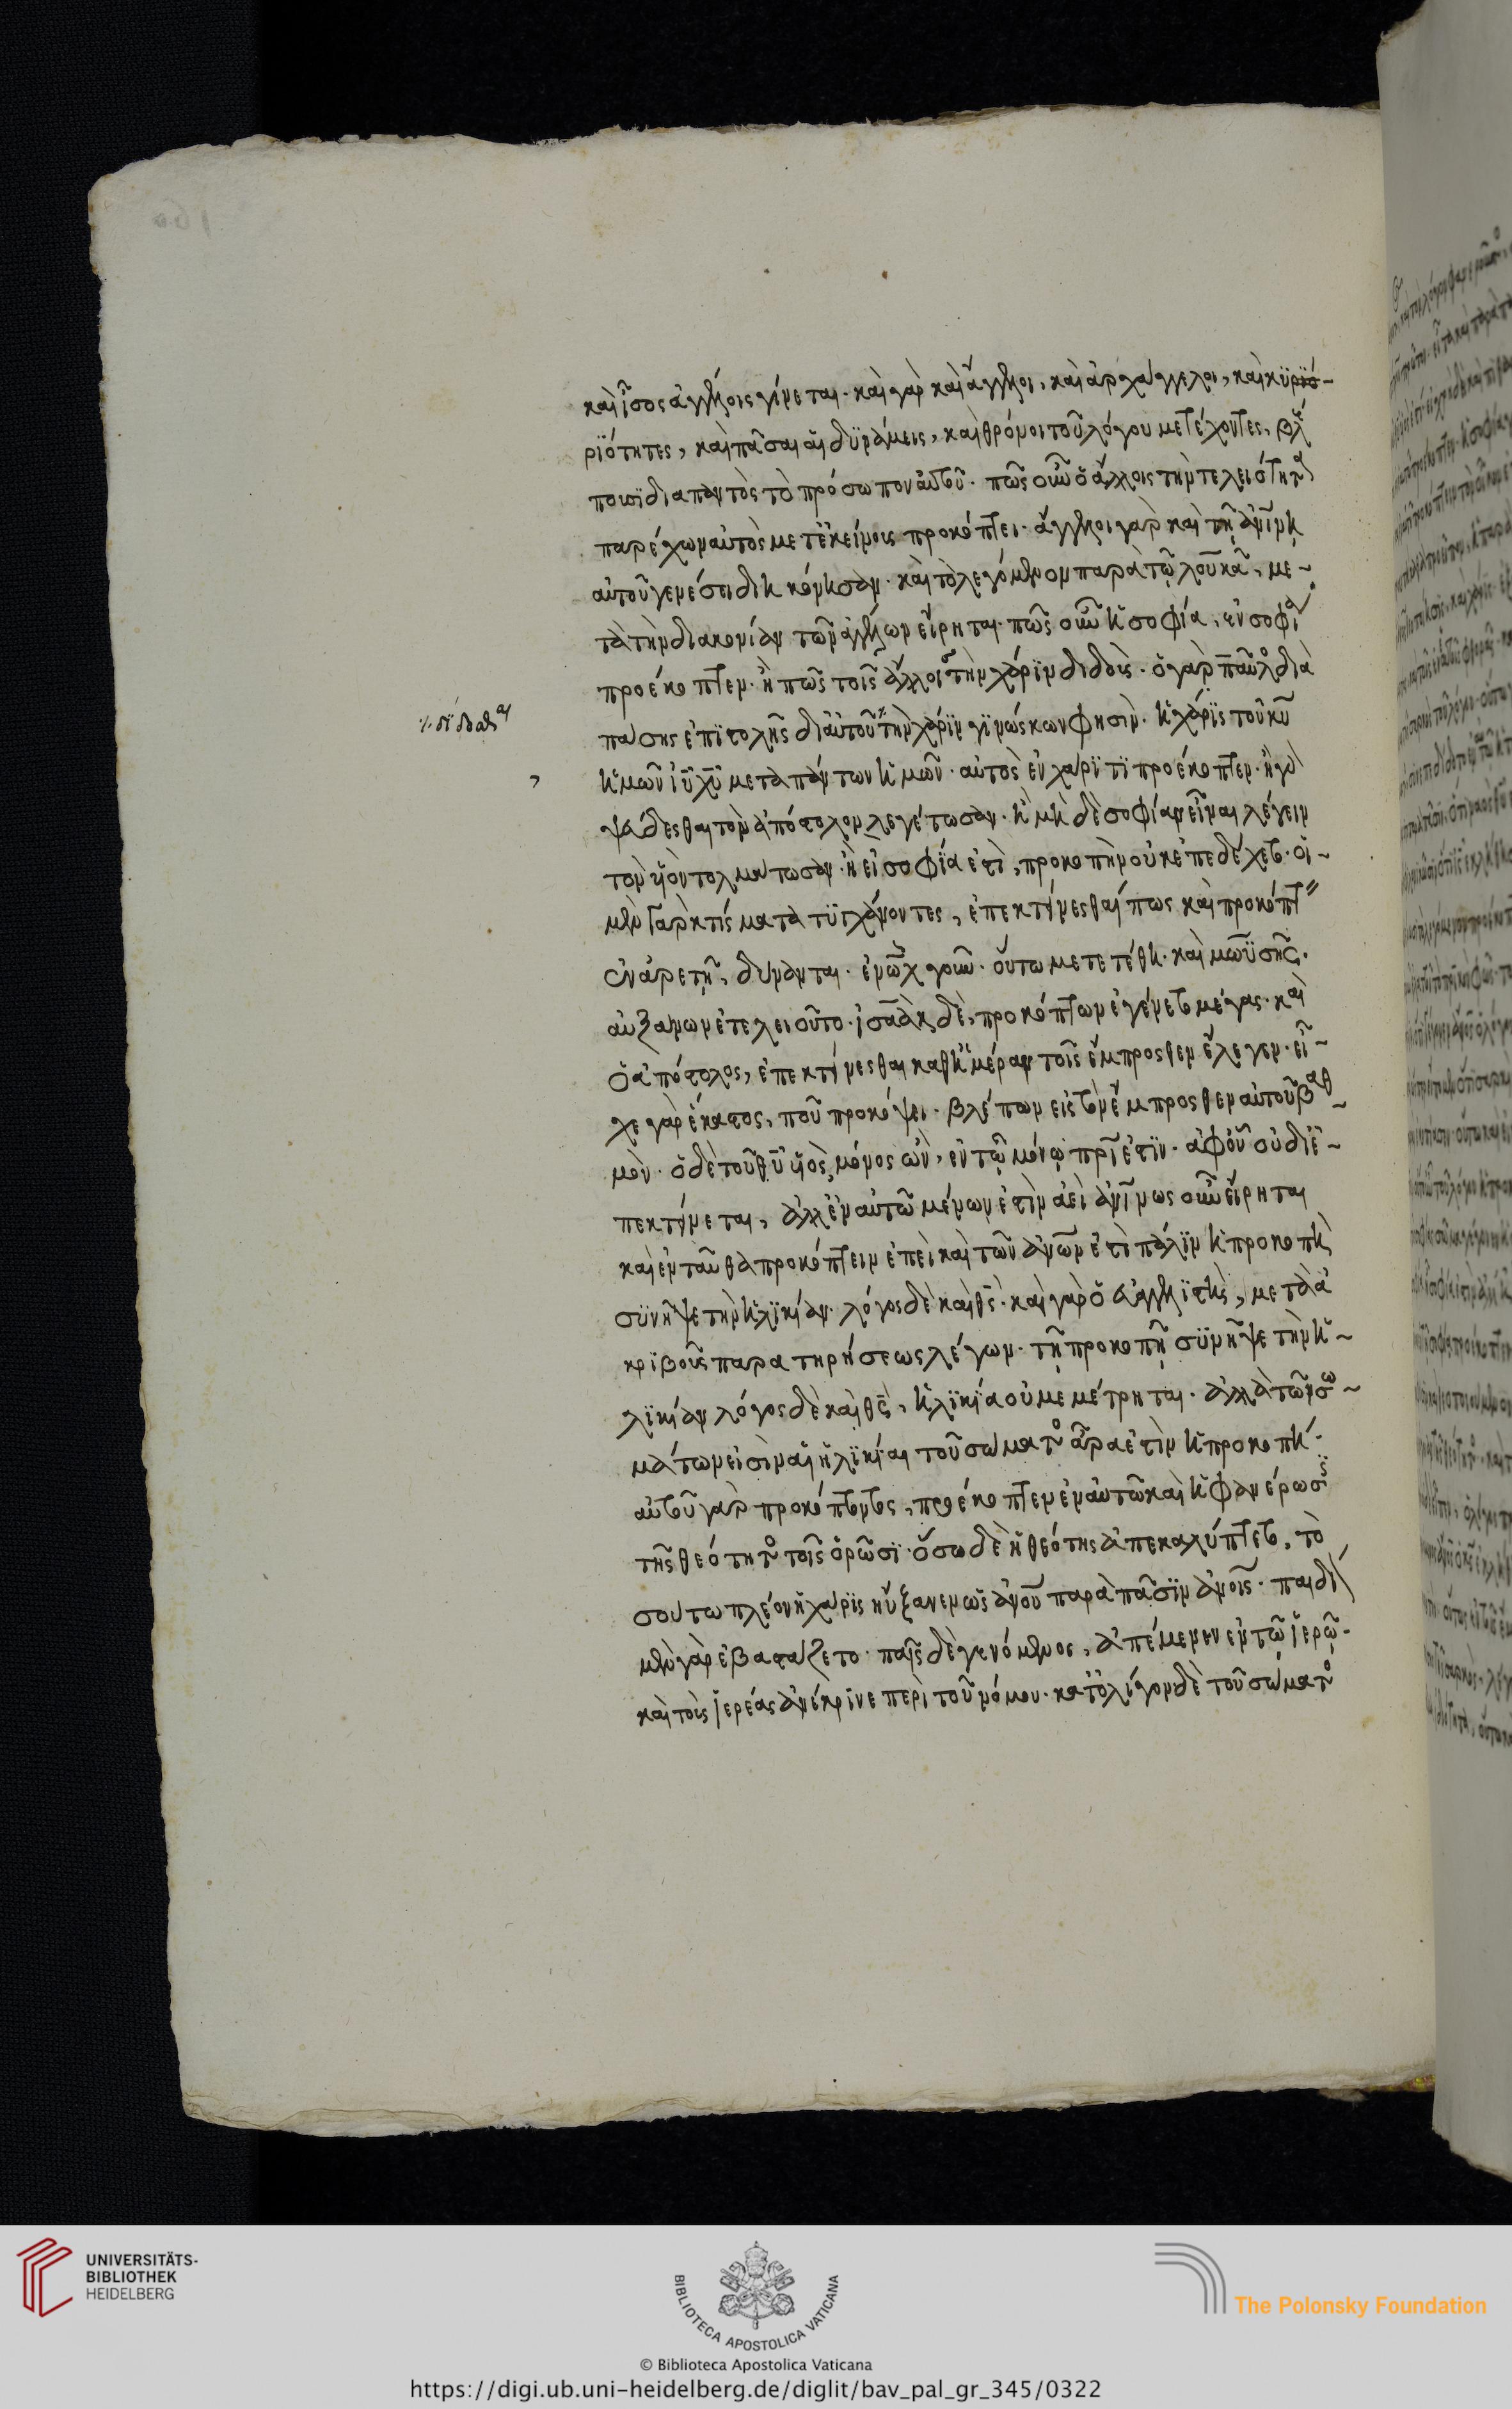 καὶ ἴσος ἀγγέλοις γίνεται· καὶ γὰρ καὶ ἄγγελοι, καὶ ἀρχάγγελοι, καὶ κϋριό-
ριότητες, καὶ πᾶσαι αἱ δϋνάμεις, καὶ θρόνοι τοῦ λόγου μετέχοντες, βλέ
πουσϊ διαπαντὸς τὸ πρόσωπον αὐτοῦ· πῶς οὖν ὁ ἄλλοις τὴν τελειότητα
παρέχων αὐτὸς μετ' ἐκείνοις προκόπτει· ἄγγελοι γὰρ καὶ τῇ ἀνΐνη
αὐτοῦ γενέσει διηκόνησαν· καὶ τὸ λεγόμενον παρὰ τῷ λουκᾶ, με-
τὰ τὴν διακονίαν τῶν ἀγγέλων εἴρηται· πῶς οὖν ἡ σοφία, ἐν σοφία
προέκοπτεν· ἢ πῶς τοῖς ἄλλοις τὴν χάρϊν διδοὺς· ὁ γὰρ παῦλος διὰ
πάσης ἐπϊστολῆς δι αὐτοῦ τὴν χάρϊν γϊνώσκων φησὶν· ἡ χάρϊς τοῦ κυ
ἡμῶν ϊυ χυ μετὰ πάντων ἡμῶν· αὐτὸς ἐν χάρϊτϊ προέκοπτεν· ἢ γὰ
ψεύδεσθαι τὸν ἀπόστολον λεγέτωσαν· ἢ μὴ δὲ σοφίαν εἶναι λέγειν
τὸν υἱὸν τολμάτωσαν· ἢ εἰ σοφία ἐστὶ, προκοπὴν οὐκ ἐπεδέχετο· οἱ-
μὲν γὰρ κτίσματα τϋγχάνοντες, ἐπεκτείνεσθαί πως καὶ προκόπτειν
ἐν ἀρετῇ, δύνανται· ἐνὼχ γοῦν· οὕτω μετετέθη· καὶ μωϋσῆς·
αὐξάνων ἐτελειοῦτο· ἰσαὰκ δὲ, προκόπτων ἐγένετο μέγας· καὶ
ὁ ἀπόστολος, ἐπεκτείνεσθαι καθ ἡμέραν τοῖς ἔμπροσθεν ἔλεγεν· εἶ-
χε γὰρ ἕκαστος, ποῦ προκόψει· βλέπων εἰς τὸν ἔμπροσθεν αὐτοῦ βαθ-
μὸν· ὁ δὲ τοῦ θυ υἱὸς μόνος ὢν, ἐν τῷ μόνῳ πρί ἐστϊν· ἀφ οὗ οὐδ ἐ-
πεκτείνεται, ἀλλ ἐν αὐτῶ μένων ἐστὶν ἀεὶ ἀνΐνως οὖν εἴρηται
καὶ ἐνταῦθα προκόπτειν ἐπεὶ καὶ τῶν ἀνων ἐστὶ πάλϊν ἡ προκοπὴ
σϋνῆψε τὴν ἡλϊκίαν· λόγος δὲ καὶ θς· καὶ γὰρ ὁ εὐαγγελϊστὴς, μετὰ ἀ
κρϊβοῦς παρατηρήσεως λέγων· τῇ προκοπῇ σϋνῆψε τὴν ἡ-
λϊκίαν λόγος δὲ καὶ θς, ἡλϊκία οὐ μεμέτρηται· ἀλλὰ τῶν σω-
μάτων εἰσὶν αἱ ἡλϊκίαι τοῦ σώματος ἄρα ἐστὶν ἡ προκοπή·
αὐτοῦ γὰρ προκόπτοντος, προέκοπτεν ἐν αὐτῶ καὶ ἡ φανέρωσϊς
τῆς θεότητος τοῖς ὁρῶσϊ· ὅσω δὲ ἡ θεότης ἀπεκαλύπτετο, το
σούτω πλέον ἡ χάρϊς ηὔξανεν ὡς ἀνου παρὰ πᾶσϊν ἀνοις· παιδί
μὲν γὰρ ἐβαστάζετο· παῖς δὲ γενόμενος, ἀπέμεινεν ἐν τῷ ἱερῷ·
καὶ τοὺς ἱερέας ἀνέκρϊνε περὶ τοῦ νόμου· κατ ὀλίγον δὲ τοῦ σώματος
© Biblioteca Apostolica Vaticana
https://digi.ub.uni-heidelberg.de/diglit/bav_pal_gr_345/0322
UNIVERSITÄTS-
BIBLIOTHEK
HEIDELBERG
BIBLIOTECA APOSTOLICA VATICANA
The Polonsky Foundation